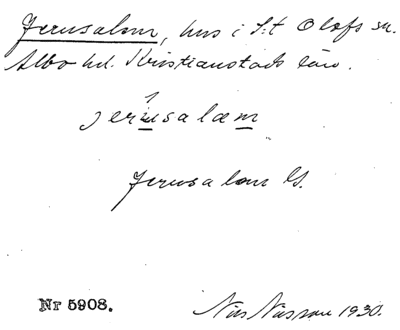 Jerusalem, hus i S:t Olofs sn.
Albo hd. Kristianstads län.
jerusalæm
Jerusalem
Nr 5908.
Nils Nilsson 1930.